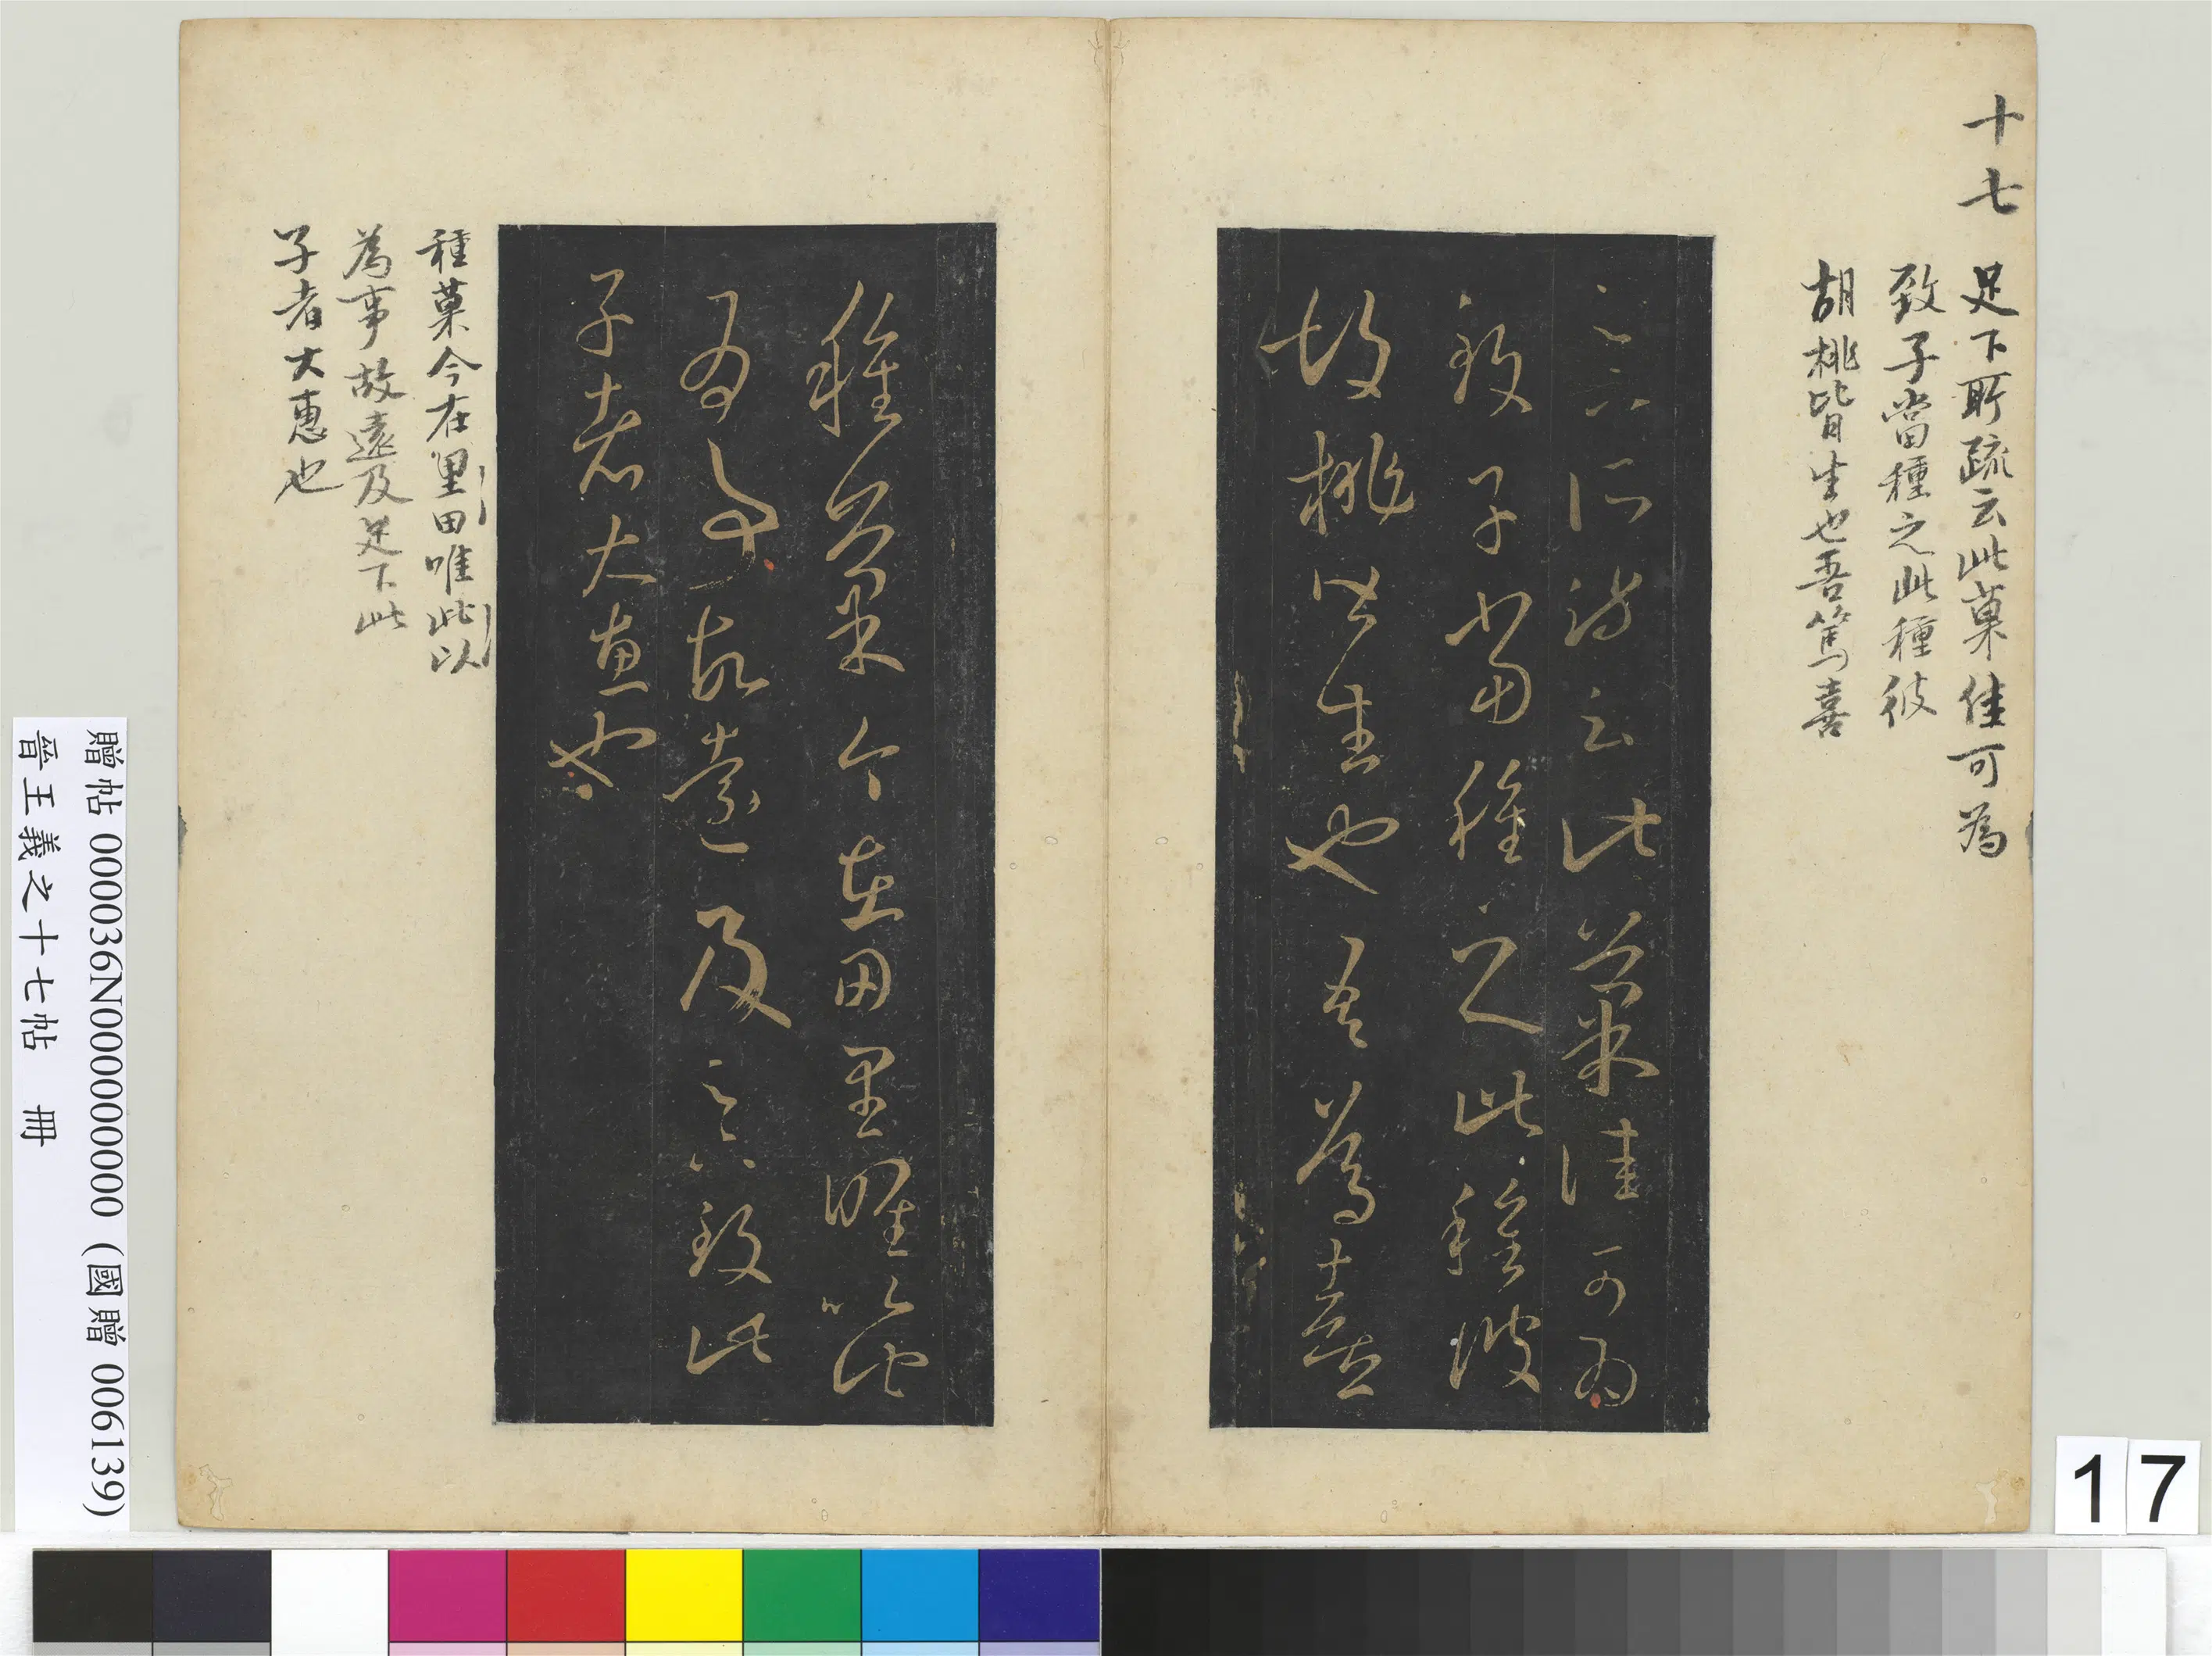 十七
足下所疏云此菓佳可為
致子當種之此種彼
胡桃皆生也吾篤喜
足下所疏云此菓佳可為
致子當種之此種彼
胡桃皆生也吾篤喜
種菓今在田里唯以此
為事故遠及足下致此
子者大惠也
種菓今在里田唯此以
為事故遠及足下此
子者大惠也
贈帖 000036N000000000 (國贈 006139)
晉王羲之十七帖 冊
17